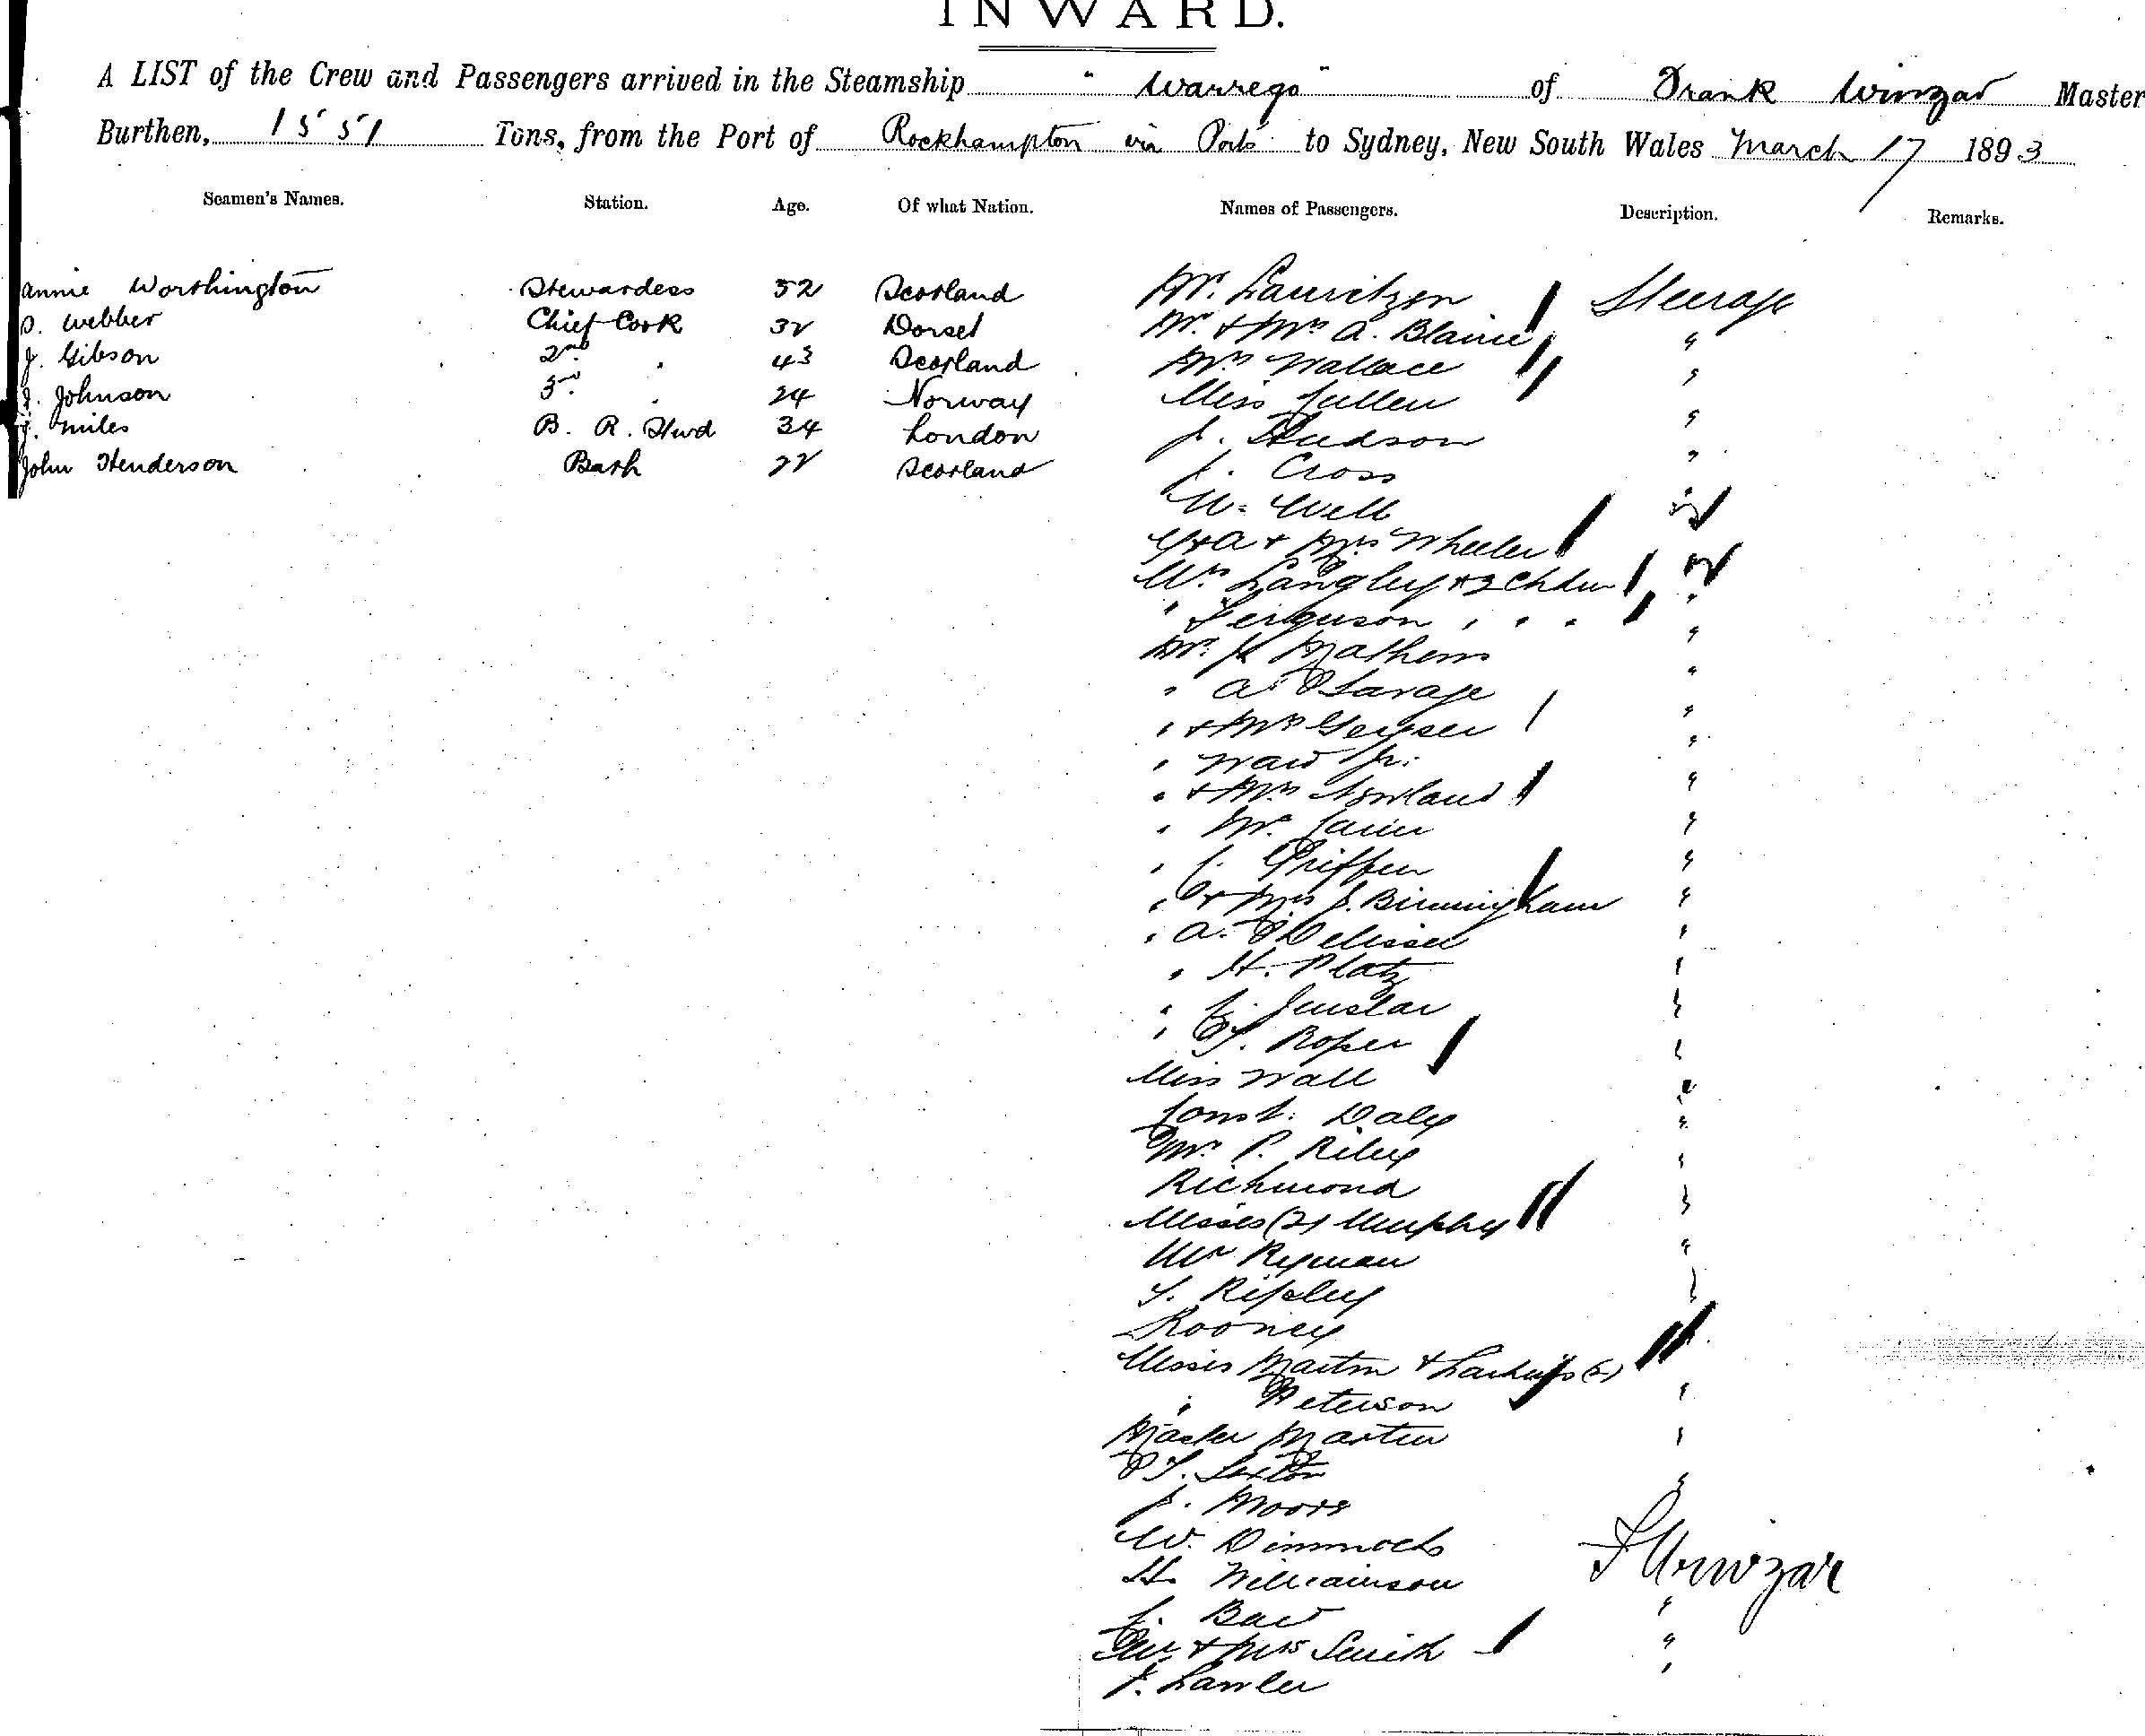 INWARD.
A LIST of the Crew and Passengers arrived in the Steamship "Warrego" of Frank Winzar Master
Burthen, 1551 Tons, from the Port of Rockhampton via Ports to Sydney, New South Wales March 17 1893
Seamen's Names. Station. Age. Of what Nation. Names of Passengers. Description. Remarks.
Annie Worthington Stewardess 52 Scotland Mr. Lauritzen Steerage
Webber Chief Cook 32 Dorset Mr. & Mrs A. Blaine "
J. Gibson 2nd " 43 Scotland Mrs Wallace "
Johnson 3rd " 24 Norway Miss "
Miles B. R. Stwd 34 London J. Hudson "
John Henderson Bath 22 Scotland Cross
W. Well
& Mrs Wheeler
Mrs Langley & 3 Chdrn "
" Ferguson " " " "
Mr. Mathews "
" A. Savage "
" & Mrs Geyser "
" Ward Jr. "
" & Mrs Nowland "
" Mr. "
" Griffen "
" & Mrs J. Birmingham "
" A. "
" H. Platz "
"
" T. Roper "
Miss Wall "
Const. Daly "
Mr. P. Riley "
Richmond "
Misses (2) Murphy "
Mr Ryman "
T. Ripley
Rooney
Misses Martin & (2)
" Peterson "
Master Martin "
T. Sexton "
J. Moore
W. Dimmock F Winzar
H. Williamson
"
& Mrs Smith "
J. Lawler "